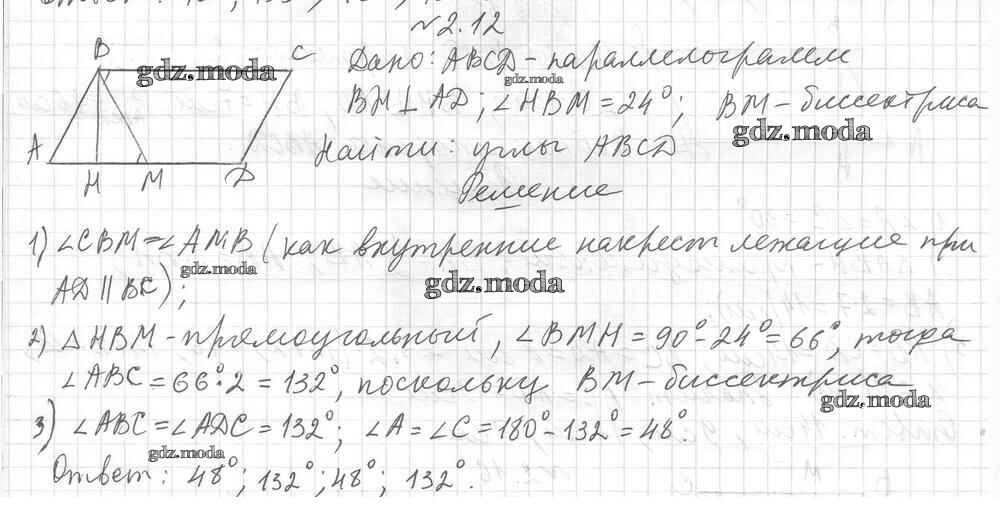 №2.12
B C
A H M D
Дано: ABCD - параллелограмм
BH ⊥ AD; ∠HBM = 24°; BM - биссектриса
Найти: углы ABCD
Решение
1) ∠CBM = ∠AMB (как внутренние накрест лежащие при
AD || BC);
2) △HBM - прямоугольный, ∠BMH = 90° - 24° = 66°, тогда
∠ABC = 66° : 2 = 132°, поскольку BM - биссектриса
3) ∠ABC = ∠ADC = 132°; ∠A = ∠C = 180° - 132° = 48°.
Ответ: 48°; 132°; 48°; 132°.
gdz.moda
gdz.moda
gdz.moda
gdz.moda
gdz.moda
gdz.moda
gdz.moda